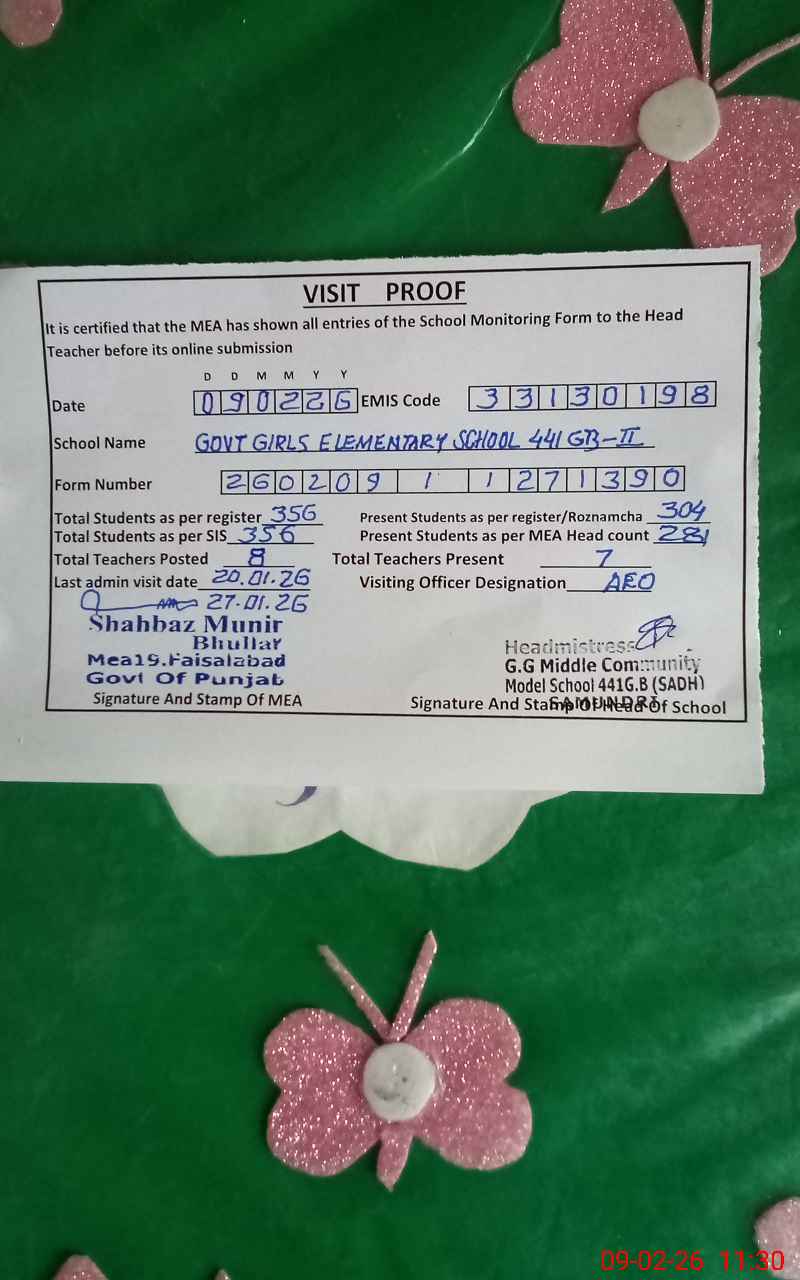 VISIT PROOF
It is certified that the MEA has shown all entries of the School Monitoring Form to the Head
Teacher before its online submission
D D M M Y Y
Date 090226 EMIS Code 33130198
School Name GOVT GIRLS ELEMENTARY SCHOOL 441 GB-II
Form Number 260209 1 1271390
Total Students as per register 356 Present Students as per register/Roznamcha 304
Total Students as per SIS 356 Present Students as per MEA Head count 281
Total Teachers Posted 8 Total Teachers Present 7
Last admin visit date 20.01.26 Visiting Officer Designation AEO
27.01.26
Shahbaz Munir
Bhullar
Mea19.Faisalabad
Govt Of Punjab
Signature And Stamp Of MEA
Headmistress
G.G Middle Community
Model School 441G.B (SADH)
SAMUNDRI
Signature And Stamp Of Head Of School
09-02-26 11:30